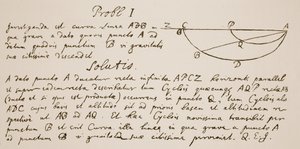 Probl I
Investiganda est curva Linea ADB
qua grave a dato quovis puncto A ad
datum quodvis punctum B vi gravitatis
suæ citissime descendet
Solutio.
A dato puncto A ducatur recta infinita APCZ horizonti parallela
et super eadem recta describatur tum Cyclois quæcunque AQP rectæ AB
(ductæ et si opus est productæ) occurrens in puncto Q, tum Cyclois alia
ADC cujus basis et altitudo sit ad prioris basem et altitudinem respective
ut AB ad AQ. Et hæc Cyclois novissima transibit per
punctum B et erit Curva illa linea in qua grave a puncto A
ad punctum B vi gravitatis suæ citissime perveniet. Q.E.I.
Z
C
P
A
Q
B
D